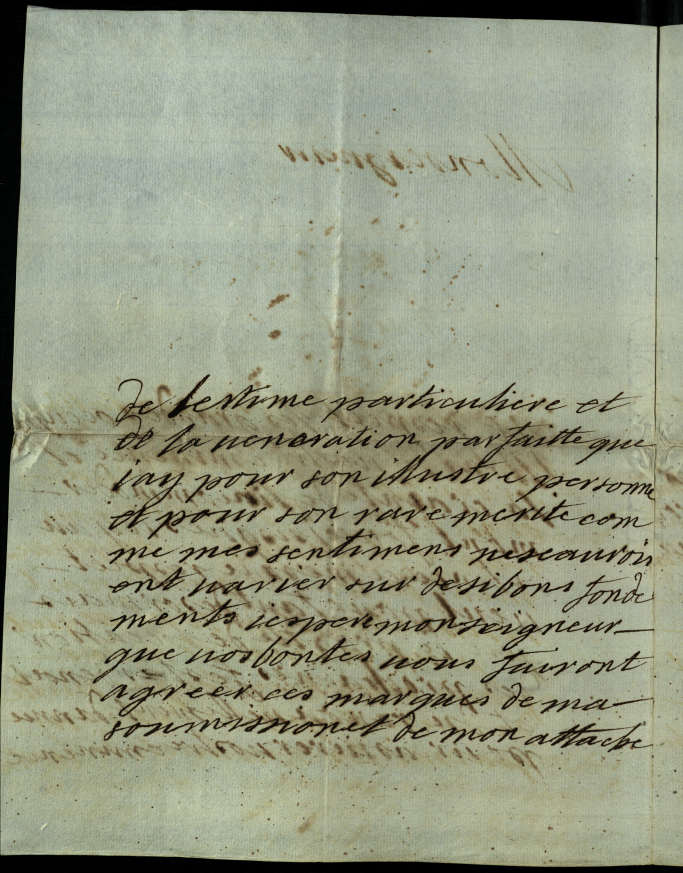 de lestime particuliere et
de la veneration parfaitte que
iay pour son illustre personne
et pour son rare merite com
me mes sentimens nescauroi
ent varier sur desibons fonde
ments iesperemonseigneur
que vosbontes vous fairont
agreer ces marques de ma
soumissionet de mon attache